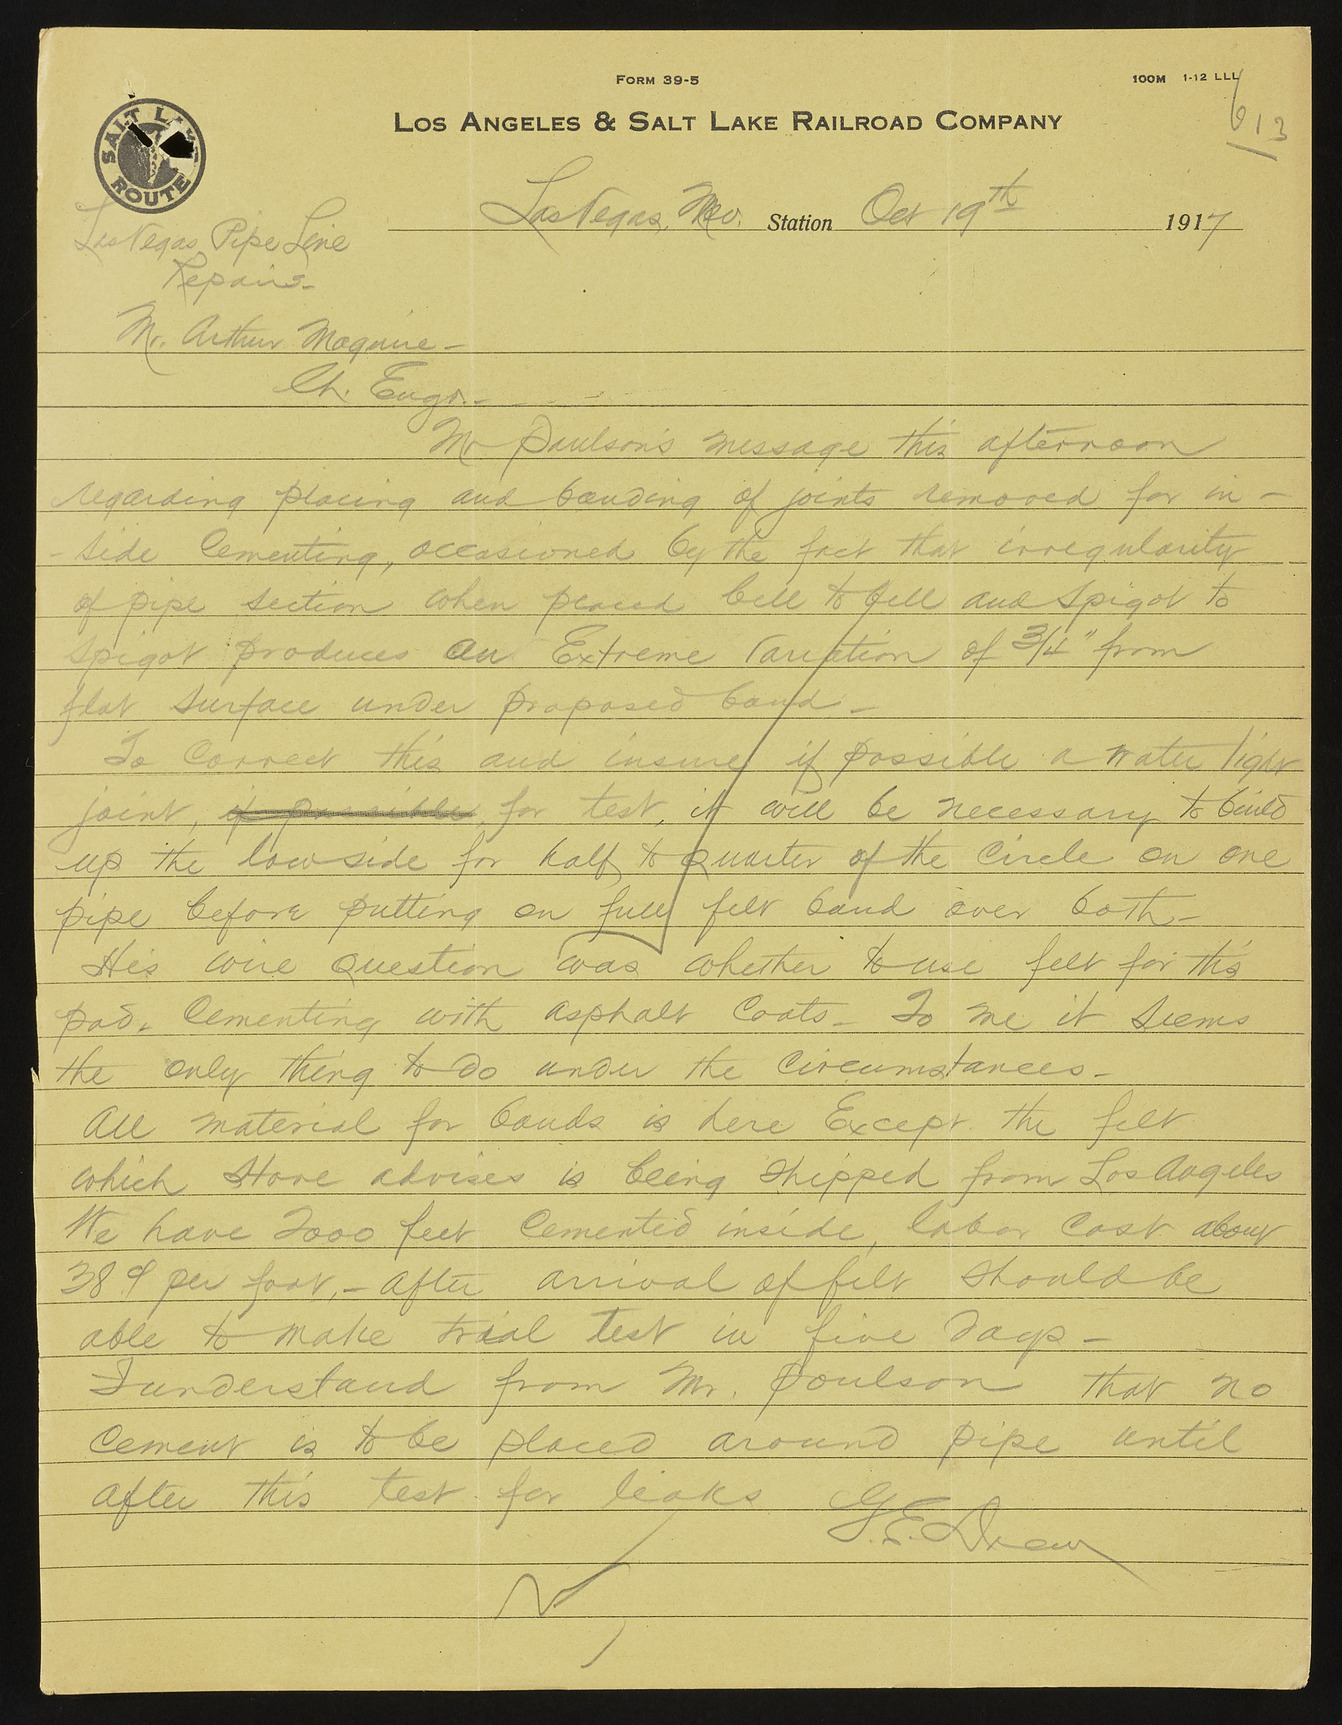 FORM 39-5
100M 1-12 LLL
613
LOS ANGELES & SALT LAKE RAILROAD COMPANY
SALT LAKE ROUTE
Las Vegas, Nev. Station Oct 19th 1917
Las Vegas Pipe Line
Repairs-
Mr. Arthur Maguire-
Ch. Engr.-
Mr Paulson's message this afternoon
regarding placing and banding of joints removed for in-
-side Cementing, occasioned by the fact that irregularity
of pipe section when placed bell to bell and spigot to
spigot produces an Extreme Variation of 3/4" from
flat surface under proposed band-
To Correct this and insure if possible a water tight
joint, if possible, for test, it will be necessary to build
up the low side for half to quarter of the Circle on one
pipe before putting on full felt band over both-
His wire question was whether to use felt for this
pad. Cementing with asphalt Coats- To me it seems
the only thing to do under the Circumstances-
All material for bands is here Except the felt
which Store advises is being shipped from Los Angeles
We have 2000 feet Cemented inside, labor Cost about
38¢ per foot,- after arrival of felt should be
able to make trial test in five days-
I understand from Mr. Poulson that no
Cement is to be placed around pipe until
after this test for leaks
G.E. Drew